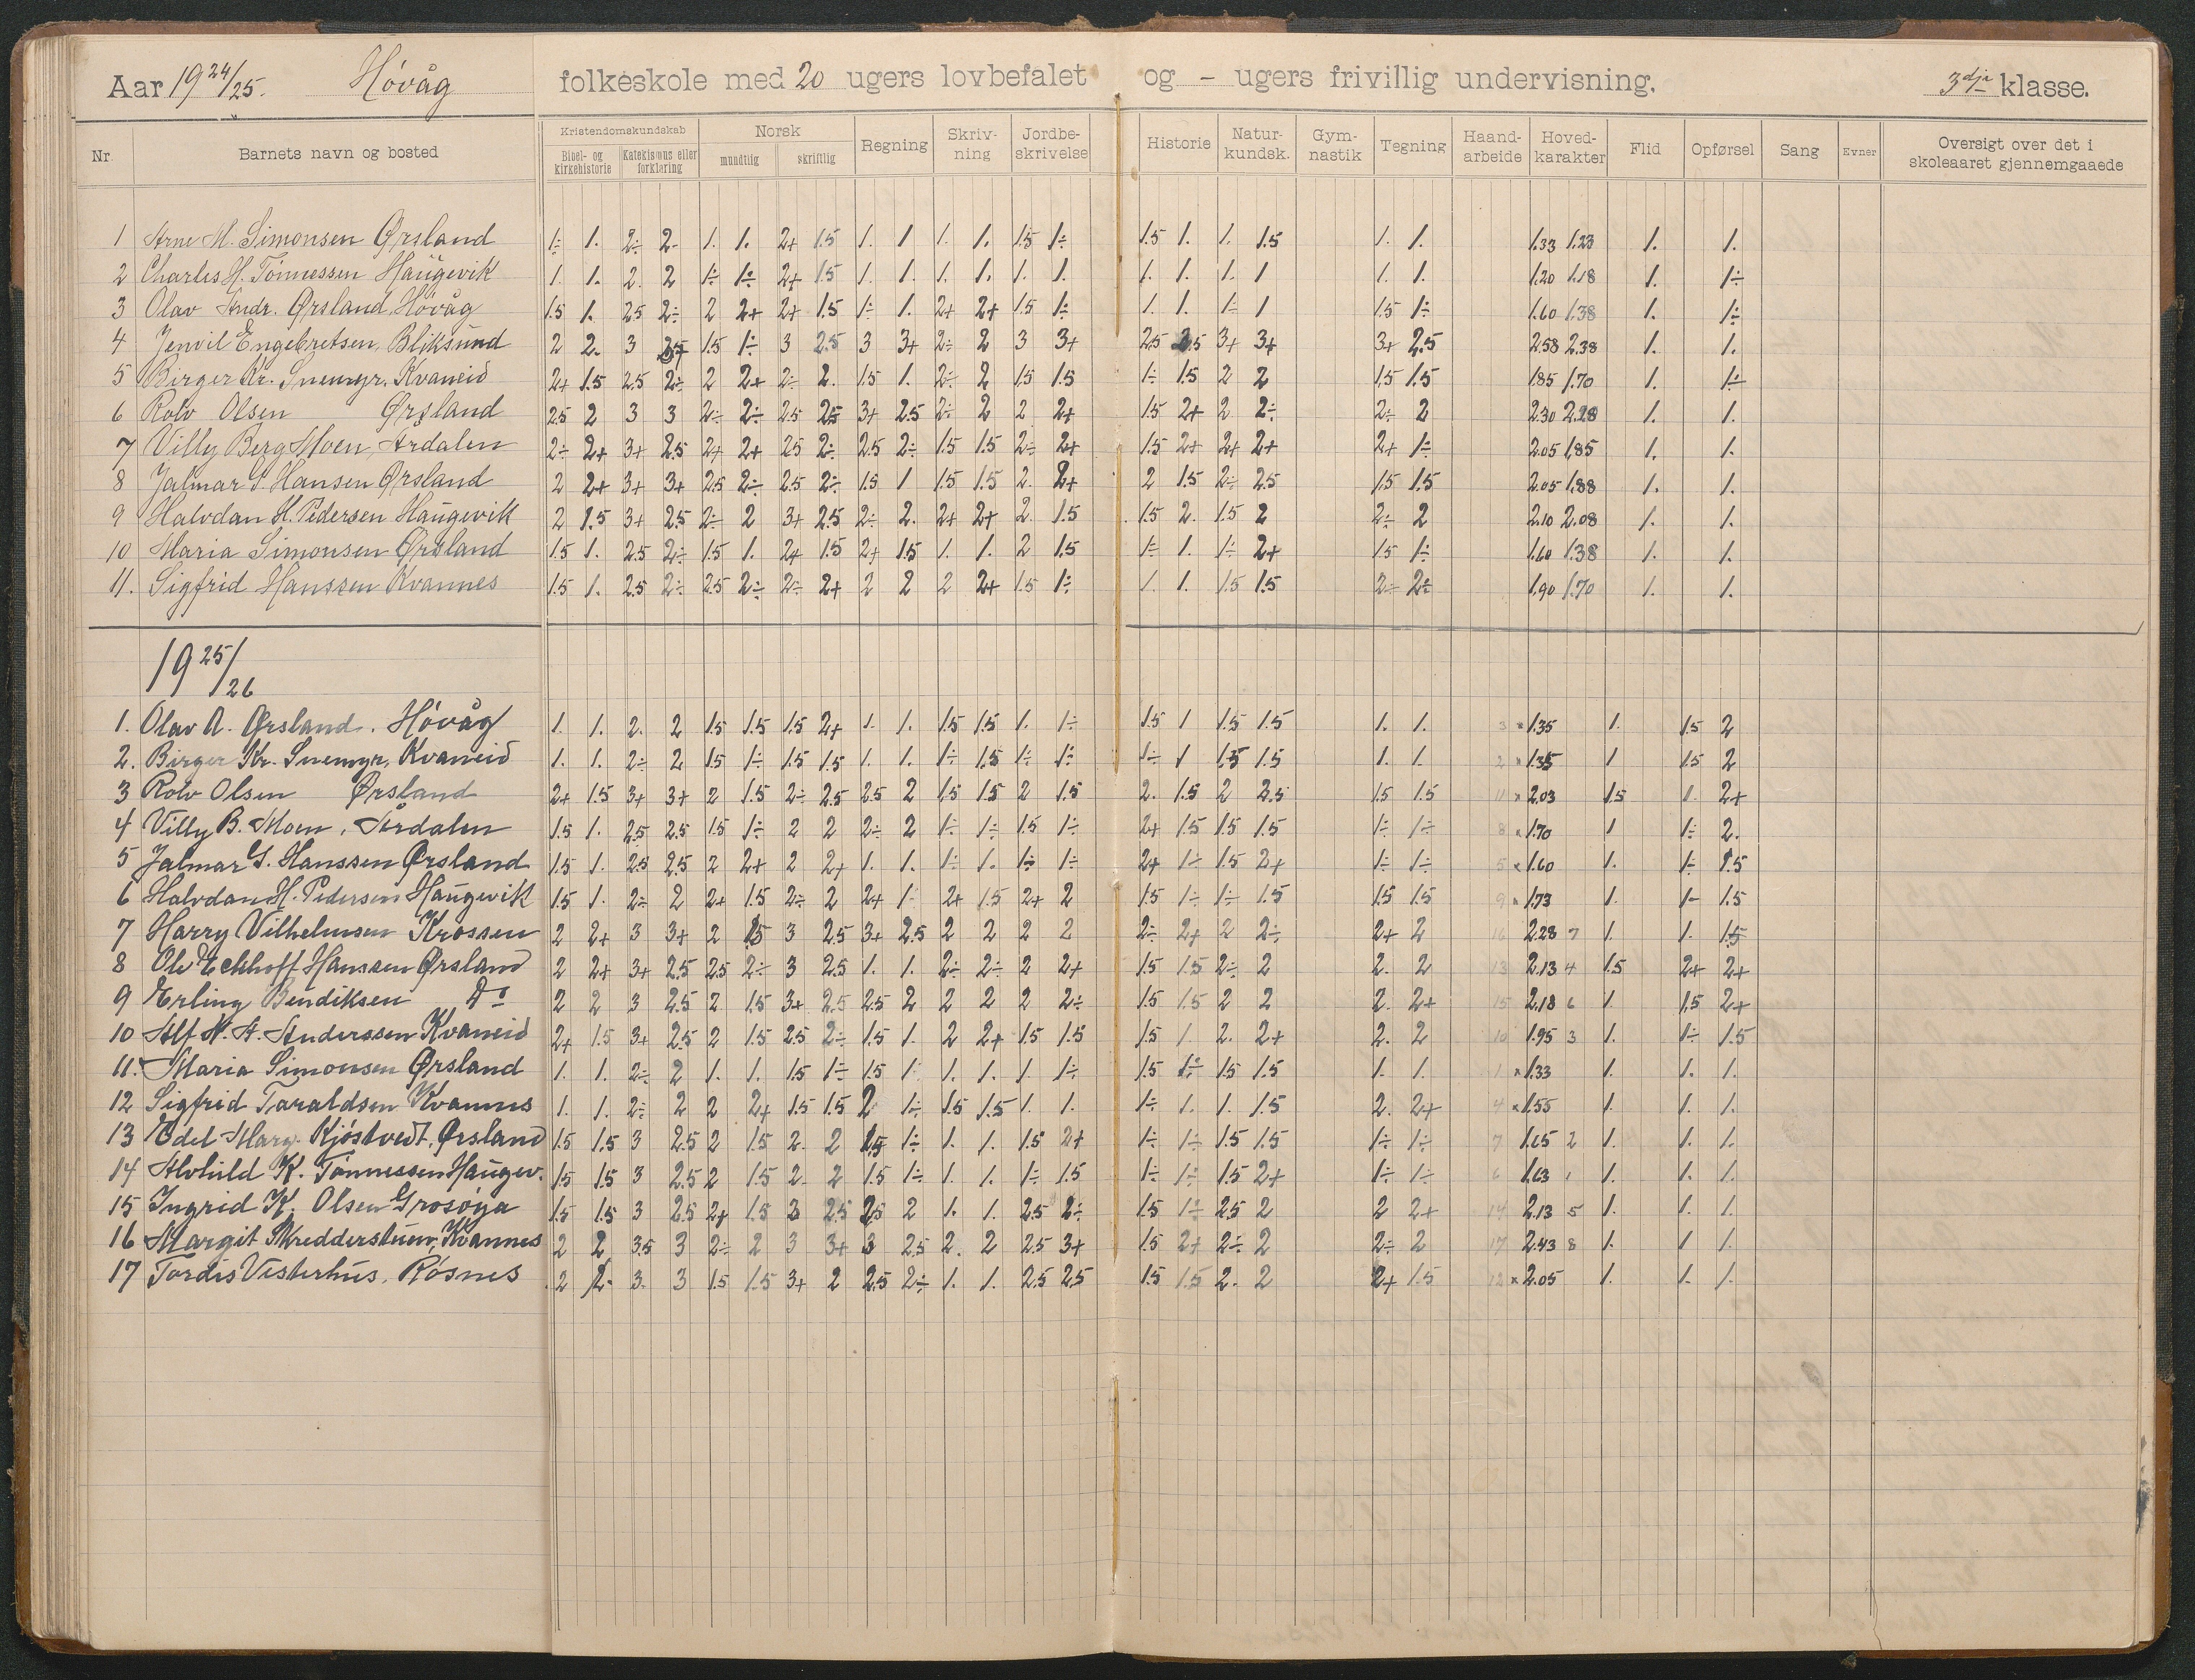 Aar 19 24/25. Høvåg folkeskole med 20 ugers lovbefalet og - ugers frivillig undervisning. 3dje klasse.
Nr. Barnets navn og bosted Kristendomskundskab Bibel- og kirkehistorie Katekismus eller forklaring Norsk mundtlig skriftlig Regning Skriv-ning Jordbe-skrivelse Historie Natur-kundsk. Gym-nastik Tegning Haand-arbeide Hoved-karakter Flid Opførsel Sang Evner Oversigt over det i skoleaaret gjennemgaaede
1 Arne M. Simonsen Ørsland 1÷ 1. 2÷ 2- 1. 1. 2+ 1.5 1. 1 1. 1. 1.5 1÷ 1.5 1. 1. 1.5 1. 1. 1.33 1.23 1. 1.
2 Charles H. Tønnessen Haugevik 1. 1. 2. 2 1÷ 1÷ 2+ 1.5 1. 1. 1. 1. 1. 1. 1. 1. 1. 1 1. 1. 1.20 1.18 1. 1÷
3 Olav Andr. Ørsland, Høvåg 1.5 1. 2.5 2÷ 2 2+ 2+ 1.5 1÷ 1. 2+ 2+ 1.5 1÷ 1. 1. 1÷ 1 1.5 1÷ 1.60 1.38 1. 1÷
4 Jenvil Engebretsen, Bliksund 2 2. 3 1.5 1÷ 3 2.5 3 3+ 2÷ 2 3 3+ 2.5 3+ 3+ 3+ 2.5 2.58 2.38 1. 1.
5 Birger Kr. Snemyr, Kvaneid 2+ 1.5 2.5 2÷ 2 2+ 2÷ 2. 1.5 1. 2÷ 2 1.5 1.5 1÷ 1.5 2 2 1.5 1.5 1.85 1.70 1. 1÷
6 Rolv Olsen Ørsland 2.5 2 3 3 2÷ 2÷ 2.5 2.5 3+ 2.5 2÷ 2 2 2+ 1.5 2+ 2 2÷ 2÷ 2 2.30 2.28 1. 1.
7 Villy Berg Moen, Årdalen 2÷ 2+ 3+ 2.5 2+ 2+ 2.5 2÷ 2.5 2÷ 1.5 1.5 2÷ 2+ 1.5 2+ 2+ 2+ 2+ 1÷ 2.05 1.85 1. 1.
8 Jalmar S. Hansen Ørsland 2 2+ 3+ 3+ 2.5 2÷ 2.5 2÷ 1.5 1 1.5 1.5 2. 2+ 2 1.5 2÷ 2.5 1.5 1.5 2.05 1.88 1. 1.
9 Halvdan H. Pedersen Haugevik 2 1.5 3+ 2.5 2÷ 2 3+ 2.5 2÷ 2. 2+ 2+ 2. 1.5 1.5 2. 1.5 2 2÷ 2 2.10 2.08 1. 1.
10 Maria Simonsen Ørsland 1.5 1. 2.5 2÷ 1.5 1. 2+ 1.5 2+ 1.5 1. 1. 2 1.5 1÷ 1. 1÷ 2+ 1.5 1÷ 1.60 1.38 1. 1.
11. Sigfrid Hanssen Kvannes 1.5 1. 2.5 2÷ 2.5 2÷ 2÷ 2+ 2 2 2 2+ 1.5 1÷ 1. 1. 1.5 1.5 2÷ 2÷ 1.90 1.70 1. 1.
19 25/26
1. Olav A. Ørsland. Høvåg 1. 1. 2. 2 1.5 1.5 1.5 2+ 1. 1. 1.5 1.5 1. 1÷ 1.5 1 1.5 1.5 1. 1. 3 × 1.35 1. 1.5 2
2. Birger Kr. Snemyr, Kvaneid 1. 1. 2÷ 2 1.5 1÷ 1.5 1.5 1. 1. 1÷ 1.5 1÷ 1÷ 1÷ 1 1.5 1.5 1. 1. 2 × 1.35 1 1.5 2
3 Rolv Olsen Ørsland 2+ 1.5 3+ 3+ 2 1.5 2÷ 2.5 2.5 2 1.5 1.5 2 1.5 2. 1.5 2 2.5 1.5 1.5 11 × 2.03 1.5 1. 2+
4 Villy B. Moen, Årdalen 1.5 1. 2.5 2.5 1.5 1÷ 2 2 2÷ 2 1÷ 1÷ 1.5 1÷ 2+ 1.5 1.5 1.5 1÷ 1÷ 8 × 1.70 1 1÷ 2.
5 Jalmar S. Hanssen Ørsland 1.5 1. 2.5 2.5 2 2+ 2 2+ 1. 1. 1÷ 1. 1÷ 1÷ 2+ 1÷ 1.5 2+ 1÷ 1÷ 5 × 1.60 1. 1÷ 1.5
6 Halvdan H. Pedersen Haugevik 1.5 1. 2÷ 2 2+ 1.5 2÷ 2 2+ 1. 2+ 1.5 2+ 2 1.5 1÷ 1÷ 1.5 1.5 1.5 9 × 1.73 1. 1- 1.5
7 Harry Vilhelmsen Krossen 2 2+ 3 3+ 2 1.5 3 2.5 3+ 2.5 2 2 2 2 2÷ 2+ 2 2÷ 2+ 2 16 2.28 7 1. 1. 1.5
8 Ole Eckhoff Hanssen Ørsland 2 2+ 3+ 2.5 2.5 2÷ 3 2.5 1. 1. 2÷ 2÷ 2 2+ 1.5 1.5 2÷ 2 2. 2 13 2.13 4 1.5 2+ 2+
9 Erling Bendiksen Do 2 2 3 2.5 2 1.5 3+ 2.5 2.5 2 2 2 2 2÷ 1.5 1.5 2 2 2. 2+ 15 2.18 6 1. 1.5 2+
10 Alf N. A. Anderssen Kvaneid 2+ 1.5 3+ 2.5 2 1.5 2.5 2÷ 1.5 1. 2 2+ 1.5 1.5 1.5 1. 2. 2+ 2. 2 10 1.95 3 1. 1÷ 1.5
11. Maria Simonsen Ørsland 1. 1. 2÷ 2 1. 1. 1.5 1÷ 1.5 1. 1. 1. 1. 1÷ 1.5 1÷ 1.5 1.5 1. 1. 1 × 1.33 1. 1. 1.
12 Sigfrid Taraldsen Kvannes 1. 1. 2÷ 2 2 2+ 1.5 1.5 2 1÷ 1.5 1.5 1. 1. 1÷ 1. 1. 1.5 2. 2+ 4 × 1.55 1. 1. 1.
13 Edel Marg. Kjøstvedt, Ørsland 1.5 1.5 3 2.5 2 1.5 2. 2 1.5 1÷ 1. 1. 1.5 2+ 1÷ 1÷ 1.5 1.5 1÷ 1÷ 7 1.65 2 1. 1. 1.
14 Alvhild K. Tønnessen Haugev. 1.5 1.5 3 2.5 2 1.5 2. 2 1.5 1÷ 1. 1. 1÷ 1.5 1÷ 1÷ 1.5 2+ 1÷ 1÷ 6 1.63 1 1. 1. 1.
15 Ingrid K. Olsen Grosøya 1.5 1.5 3 2.5 2+ 1.5 3 2.5 2.5 2 1. 1. 2.5 2÷ 1.5 1÷ 2.5 2 2 2+ 14 2.13 5 1. 1. 1.
16 Margit Skredderstuen, Kvannes 2 2 3.5 3 2÷ 2 3 3+ 3 2.5 2. 2 2.5 3+ 1.5 2+ 2÷ 2 2÷ 2 17 2.43 8 1. 1 1.
17 Tordis Vesterhus, Røsnes 2 2- 3. 3 1.5 1.5 3+ 2 2.5 2÷ 1. 1. 2.5 2.5 1.5 1.5 2. 2 2+ 1.5 12 × 2.05 1. 1. 1.